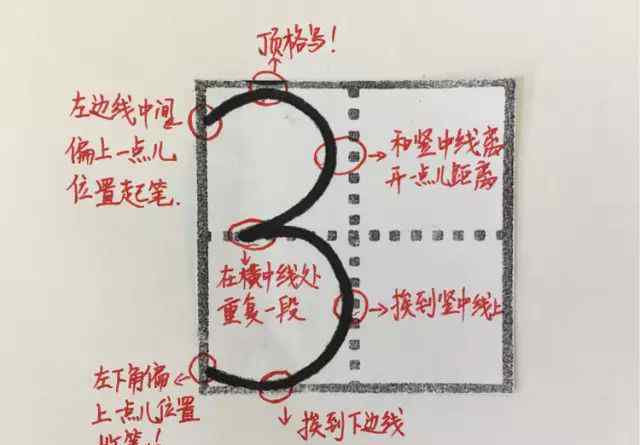 顶格写！
左边线中间
偏上一点儿
位置起笔.
和竖中线离
开一点儿距离
3
在横中线处
重复一段
挨到竖中线上
左下角偏
上一点儿位置
收笔！
挨到下边线